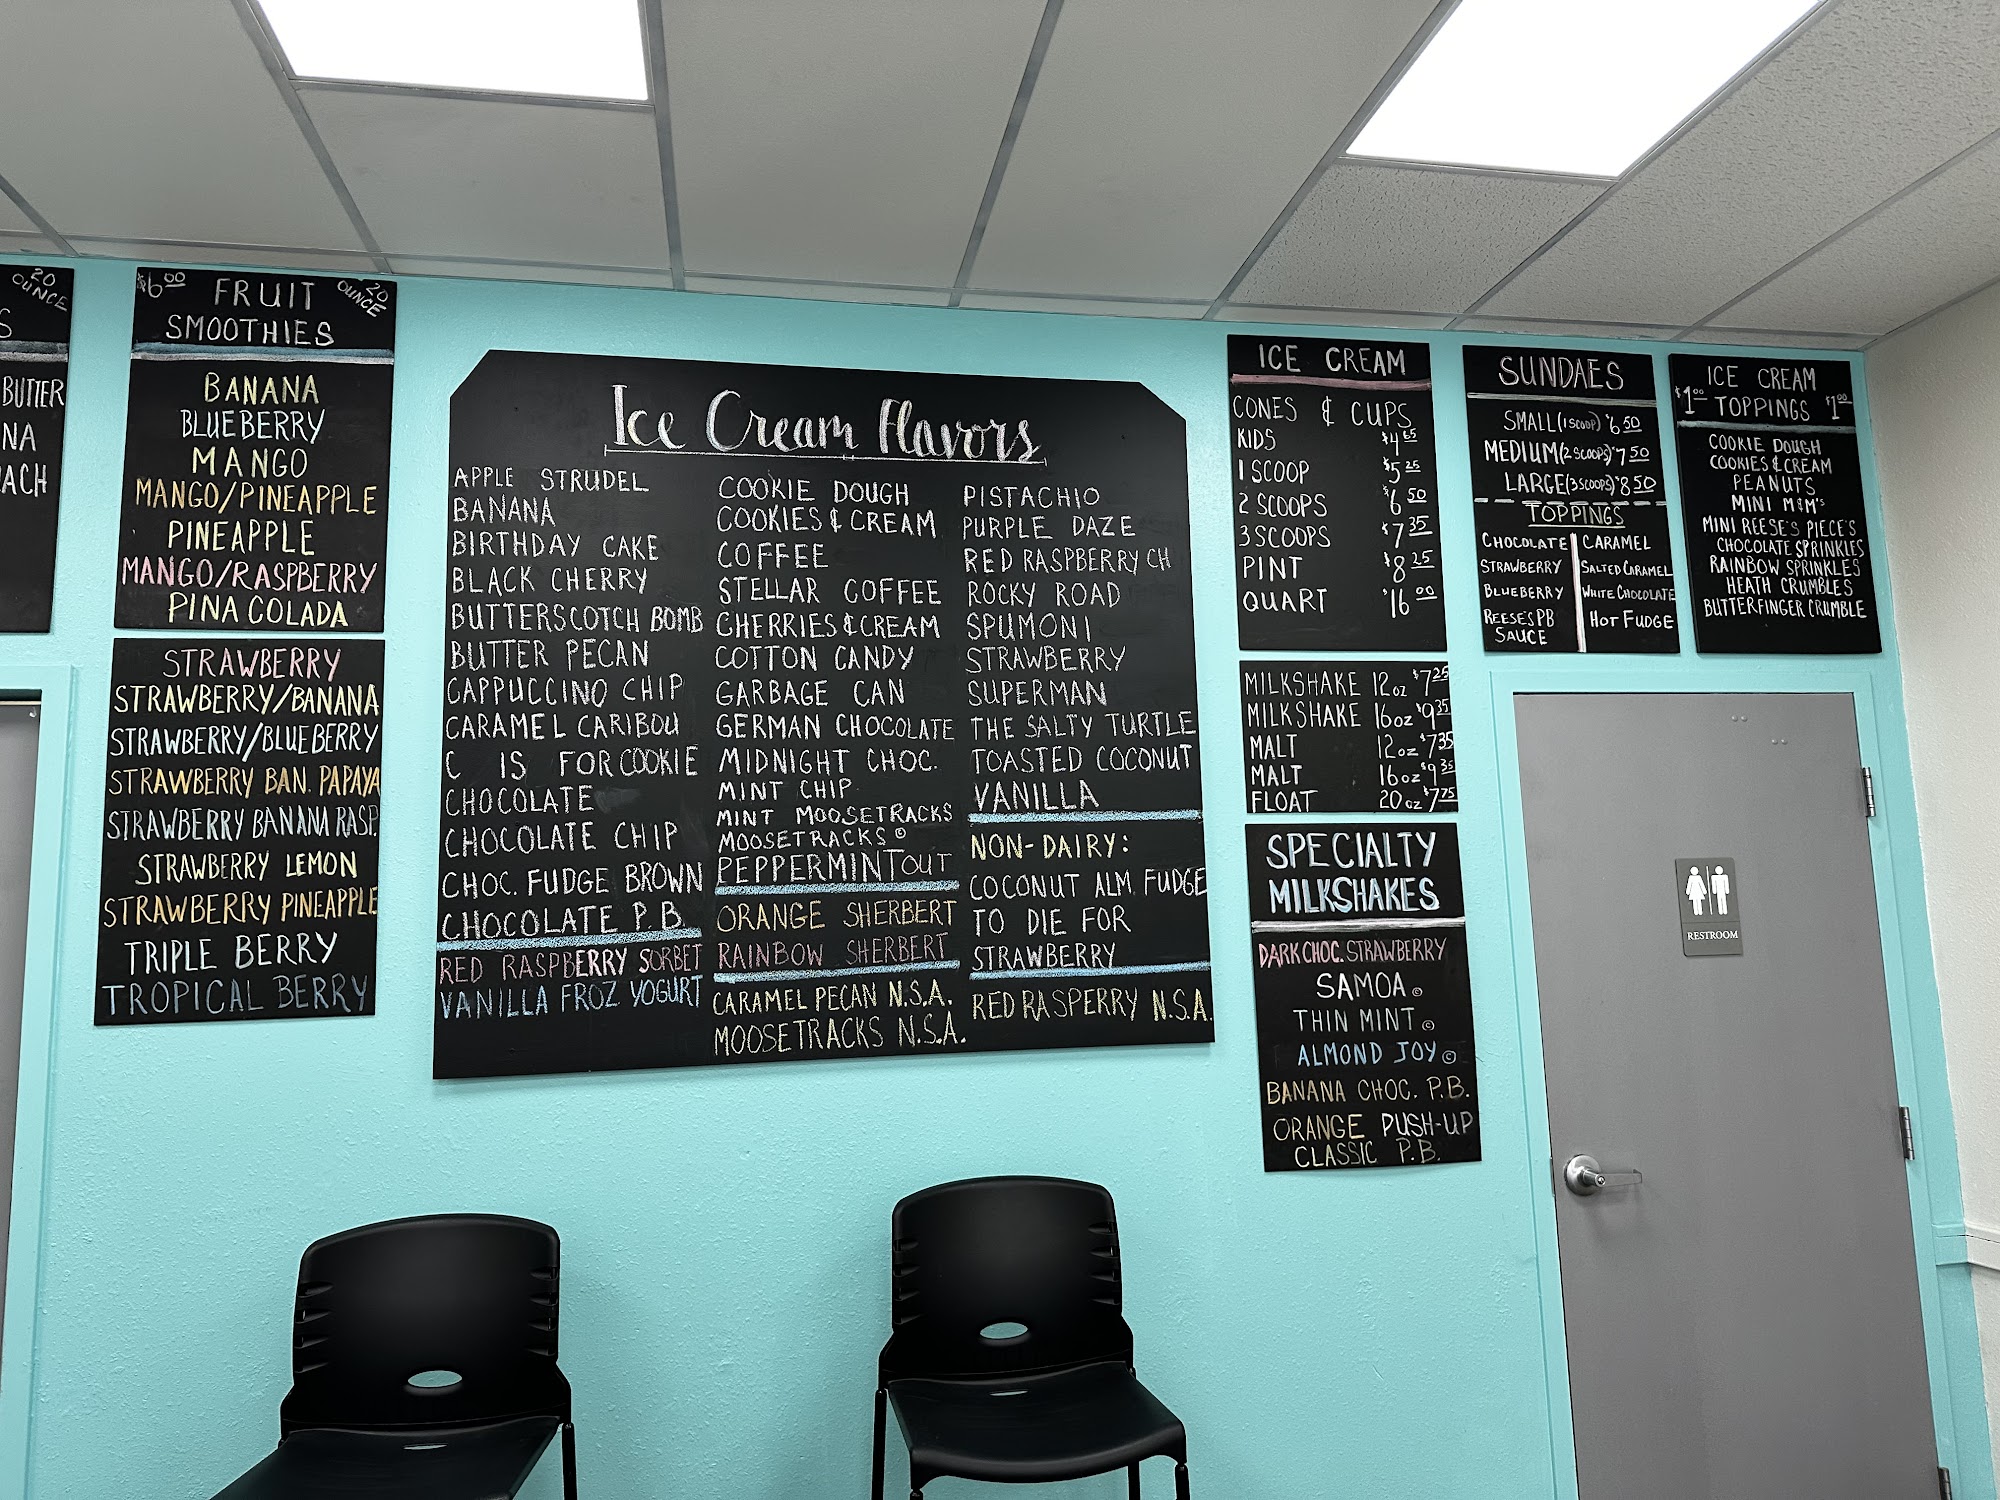 20
OUNCE
S
BUTTER
NA
ACH
$6.00 FRUIT 20 OUNCE
SMOOTHIES
BANANA
BLUEBERRY
MANGO
MANGO/PINEAPPLE
PINEAPPLE
MANGO/RASPBERRY
PINA COLADA
STRAWBERRY
STRAWBERRY/BANANA
STRAWBERRY/BLUEBERRY
STRAWBERRY BAN. PAPAYA
STRAWBERRY BANANA RASP.
STRAWBERRY LEMON
STRAWBERRY PINEAPPLE
TRIPLE BERRY
TROPICAL BERRY
Ice Cream Flavors
APPLE STRUDEL
BANANA
BIRTHDAY CAKE
BLACK CHERRY
BUTTERSCOTCH BOMB
BUTTER PECAN
CAPPUCCINO CHIP
CARAMEL CARIBOU
C IS FOR COOKIE
CHOCOLATE
CHOCOLATE CHIP
CHOC. FUDGE BROWN
CHOCOLATE P.B.
RED RASPBERRY SORBET
VANILLA FROZ YOGURT
COOKIE DOUGH
COOKIES & CREAM
COFFEE
STELLAR COFFEE
CHERRIES & CREAM
COTTON CANDY
GARBAGE CAN
GERMAN CHOCOLATE
MIDNIGHT CHOC.
MINT CHIP
MINT MOOSETRACKS
MOOSETRACKS ©
PEPPERMINT OUT
ORANGE SHERBERT
RAINBOW SHERBERT
CARAMEL PECAN N.S.A.
MOOSETRACKS N.S.A.
PISTACHIO
PURPLE DAZE
RED RASPBERRY CH
ROCKY ROAD
SPUMONI
STRAWBERRY
SUPERMAN
THE SALTY TURTLE
TOASTED COCONUT
VANILLA
NON-DAIRY:
COCONUT ALM. FUDGE
TO DIE FOR
STRAWBERRY
RED RASPERRY N.S.A.
ICE CREAM
CONES & CUPS
KIDS $4.65
1 SCOOP $5.25
2 SCOOPS $6.50
3 SCOOPS $7.35
PINT $8.25
QUART $16.00
MILKSHAKE 12oz $7.25
MILKSHAKE 16oz $9.35
MALT 12oz $7.35
MALT 16oz $9.35
FLOAT 20oz $7.75
SPECIALTY
MILKSHAKES
DARK CHOC. STRAWBERRY
SAMOA ©
THIN MINT ©
ALMOND JOY ©
BANANA CHOC. P.B.
ORANGE PUSH-UP
CLASSIC P.B.
SUNDAES
SMALL (1 SCOOP) $6.50
MEDIUM (2 SCOOPS) $7.50
LARGE (3 SCOOPS) $8.50
TOPPINGS
CHOCOLATE CARAMEL
STRAWBERRY SALTED CARAMEL
BLUEBERRY WHITE CHOCOLATE
REESE'S PB SAUCE HOT FUDGE
ICE CREAM
$1.00 TOPPINGS $1.00
COOKIE DOUGH
COOKIES & CREAM
PEANUTS
MINI M&M'S
MINI REESE'S PIECE'S
CHOCOLATE SPRINKLES
RAINBOW SPRINKLES
HEATH CRUMBLES
BUTTERFINGER CRUMBLE
RESTROOM